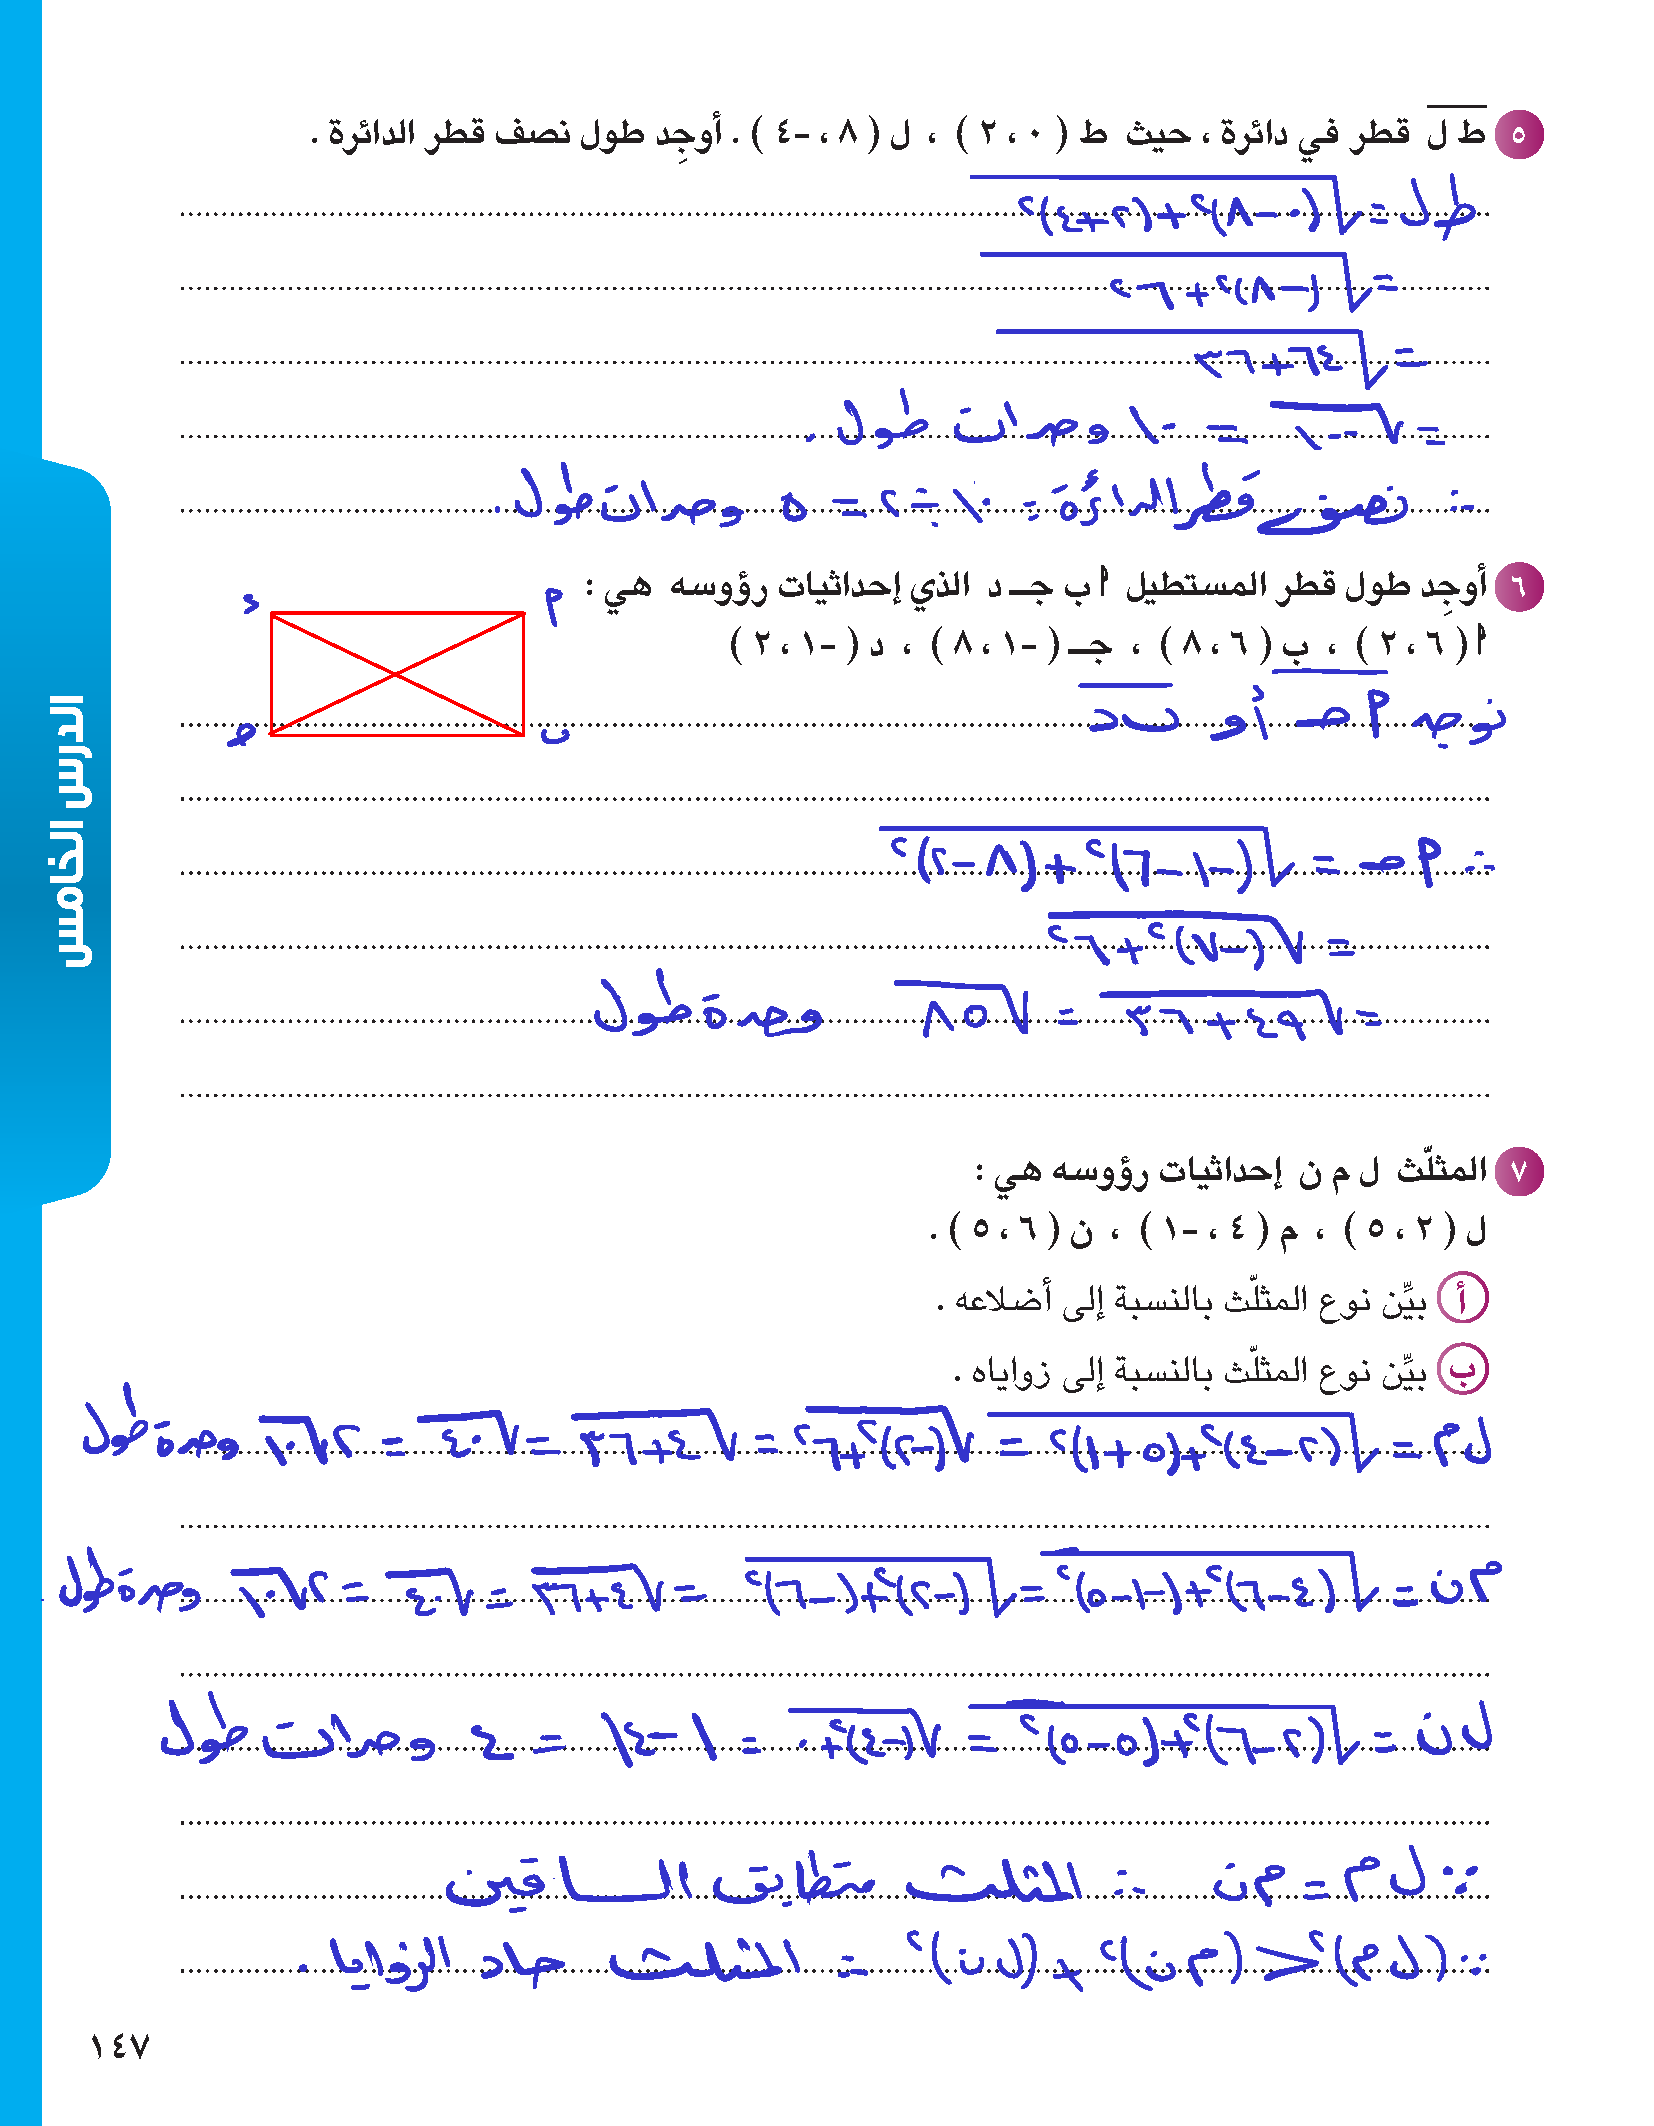 ٥ ط ل قطر في دائرة ، حيث ط ( ٠ ، ٢ ) ، ل ( ٨ ، -٤ ) . أوجِد طول نصف قطر الدائرة .
ط ل = √(٠ - ٨)² + (٢ + ٤)²
= √(-٨)² + ٦²
= √٦٤ + ٣٦
= √١٠٠ = ١٠ وحدات طول .
∴ نصف قطر الدائرة = ١٠ ÷ ٢ = ٥ وحدات طول .
٦ أوجِد طول قطر المستطيل أ ب جـ د الذي إحداثيات رؤوسه هي :
أ ( ٦ ، ٢ ) ، ب ( ٦ ، ٨ ) ، جـ ( -١ ، ٨ ) ، د ( -١ ، ٢ )
د
أ
حـ
ب
نوجد أ حـ أو ب د
∴ أ حـ = √(-١ - ٦)² + (٨ - ٢)²
= √(-٧)² + ٦²
= √٤٩ + ٣٦ = √٨٥ وحدة طول
٧ المثلّث ل م ن إحداثيات رؤوسه هي :
ل ( ٢ ، ٥ ) ، م ( ٤ ، -١ ) ، ن ( ٦ ، ٥ ) .
أ بيِّن نوع المثلّث بالنسبة إلى أضلاعه .
ب بيِّن نوع المثلّث بالنسبة إلى زواياه .
ل م = √(٢ - ٤)² + (٥ + ١)² = √(-٢)² + ٦² = √٤ + ٣٦ = √٤٠ = ٢√١٠ وحدة طول
م ن = √(٤ - ٦)² + (-١ - ٥)² = √(-٢)² + (-٦)² = √٤ + ٣٦ = √٤٠ = ٢√١٠ وحدة طول
ل ن = √(٢ - ٦)² + (٥ - ٥)² = √(-٤)² + ٠ = |-٤| = ٤ وحدات طول
∵ ل م = م ن ∴ المثلث متطابق الساقين
∵ (ل م)² < (م ن)² + (ل ن)² = المثلث حاد الزوايا .
الدرس الخامس
١٤٧